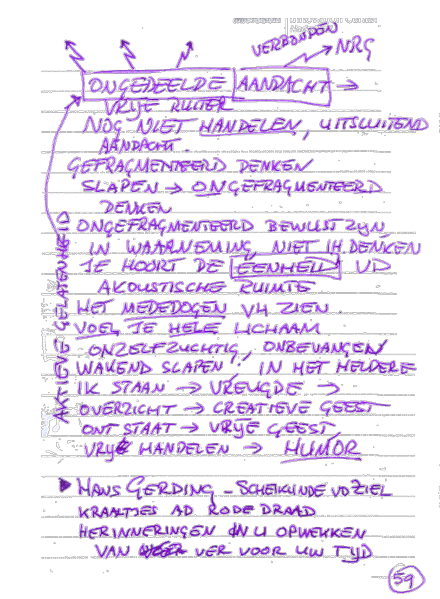 VERBONDEN
NRG
ONGEDEELDE AANDACHT →
VRIJE RUITER
NOG NIET HANDELEN, UITSLUITEND
AANDACHT.
GEFRAGMENTEERD DENKEN
SLAPEN → ONGEFRAGMENTEERD
DENKEN
ONGEFRAGMENTEERD BEWUSTZIJN
IN WAARNEMING, NIET IH DENKEN
JE HOORT DE EENHEID VD
AKOUSTISCHE RUIMTE
HET MEDEDOGEN VH ZIEN.
VOEL JE HELE LICHAAM
ONZELFZUCHTIG, ONBEVANGEN
WAKEND SLAPEN! IN HET HELDERE
IK STAAN → VREUGDE →
OVERZICHT → CREATIEVE GEEST
ONTSTAAT → VRIJE GEEST
VRIJ HANDELEN → HUMOR
AKTIEVE GELATENHEID
► HANS GERDING - SCHEIKUNDE VD ZIEL
KRAALTJES AD RODE DRAAD
HERINNERINGEN IN U OPWEKKEN
VAN VER VOOR UW TIJD
59